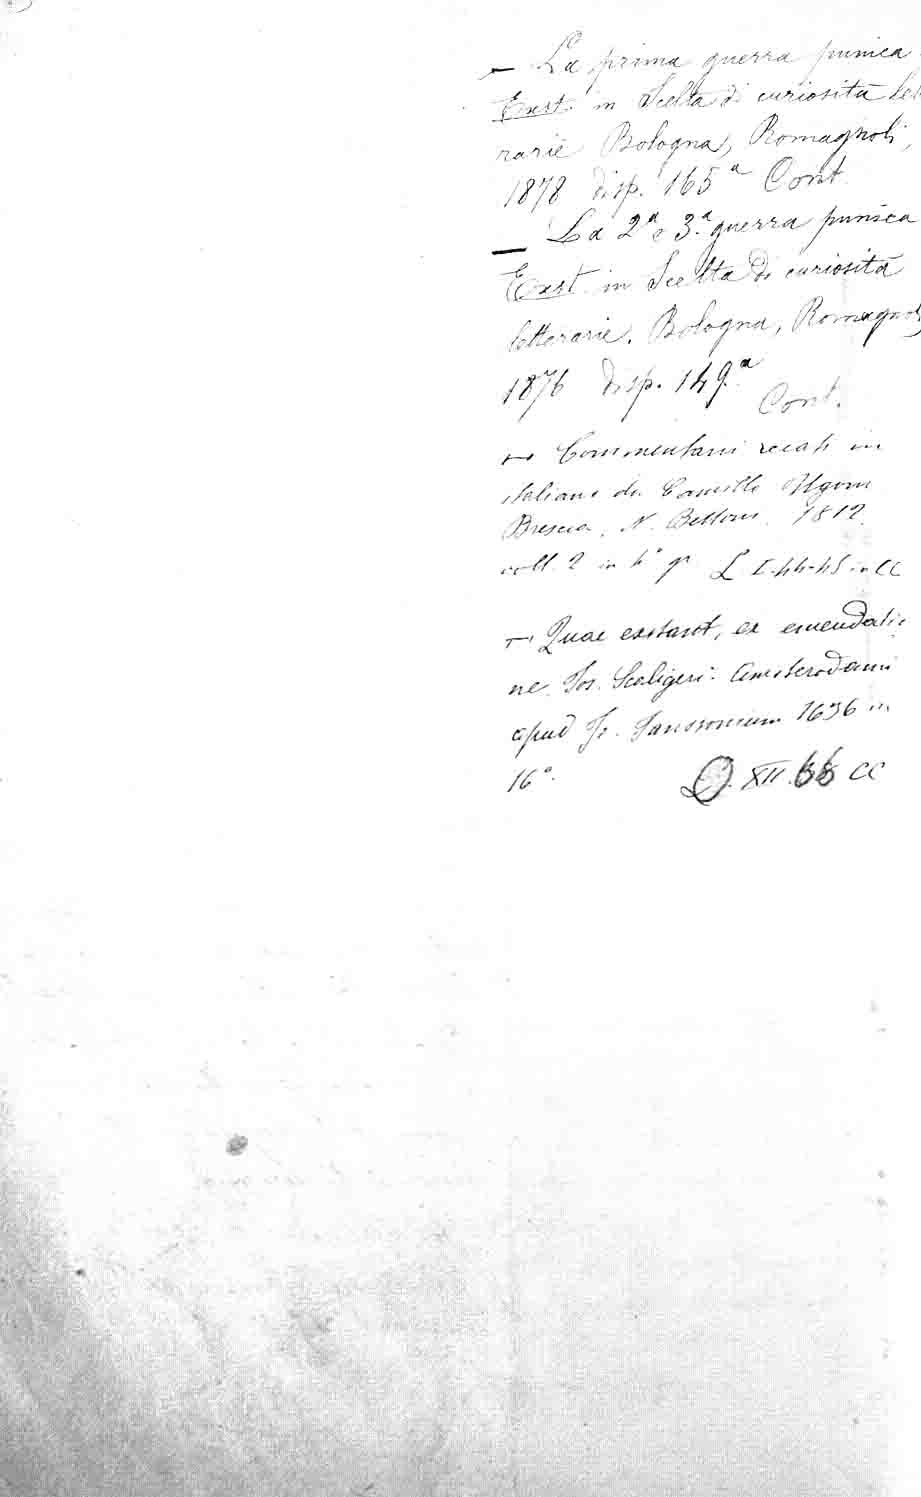 — La prima guerra punica
Exst. in Scelta di curiosità let
rarie Bologna, Romagnoli,
1878 disp. 165ª Cont.
— La 2ª e 3.ª guerra punica
Exst. in Scelta di curiosità
letterarie. Bologna, Romagnoli
1876 disp. 149.ª
Cont.
— Commentarii recati in
italiano da Camillo Ugoni
Brescia, N. Bettoni. 1812.
voll. 2 in 4°
— Quae exstant, ex emendatio
ne Jos. Scaligeri. Amsterodami
apud Jo. Janssonium 1636 in
16°. XII. CC